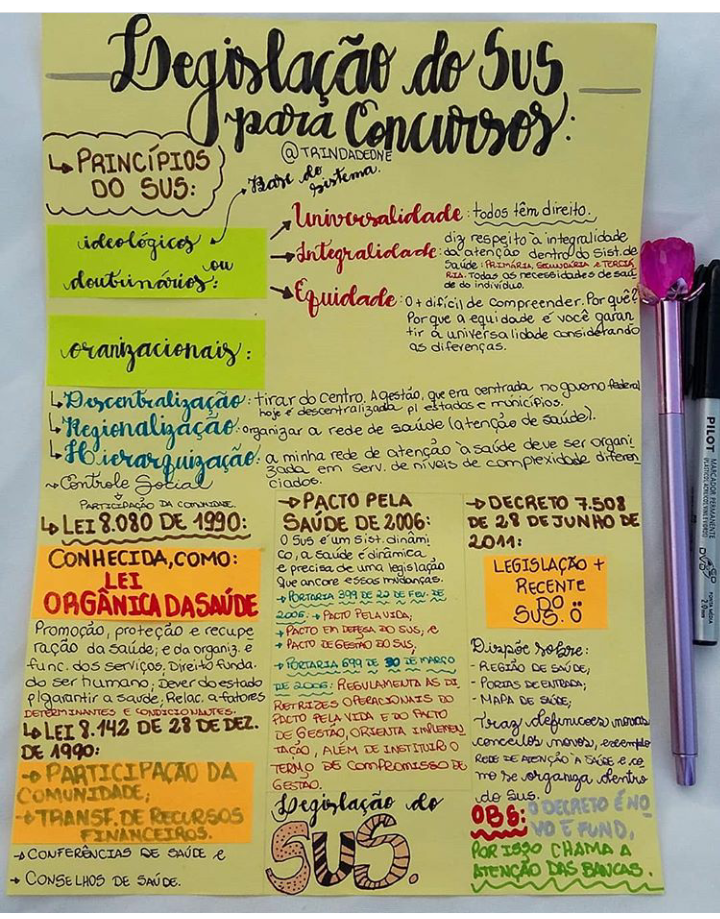 Legislação do SUS
para Concursos:
@TRINDADEONE
↳ PRINCÍPIOS
DO SUS:
Base do
sistema.
ideológicos
ou
doutrinários:
→ Universalidade: todos têm direito.
→ Integralidade: diz respeito à integralidade
da atenção dentro do Sist. de
Saúde: PRIMÁRIA, SECUNDÁRIA E TERCIÁ
RIA. Todas as necessidades de saú
de do indivíduo.
→ Equidade: O + difícil de compreender. Por quê?
Porque a equidade é você garan
tir a universalidade considerando
as diferenças.
oranizacionais:
↳ Descentralização: tirar do centro. A gestão, que era centrada no governo federal
hoje é descentralizada p/ estados e municípios.
↳ Regionalização: organizar a rede de saúde (atenção de saúde).
↳ Hierarquização: a minha rede de atenção à saúde deve ser organi
zada em serv. de níveis de complexidade diferen
ciados.
→ Controle Social
PARTICIPAÇÃO DA COMUNIDADE.
↳ LEI 8.080 DE 1990:
CONHECIDA, COMO:
LEI
ORGÂNICA DA SAÚDE
Promoção, proteção e recupe
ração da saúde; e da organiz. e
func. dos serviços; Direito funda.
do ser humano; Dever do estado
p/ garantir a saúde; Relac. a fatores
DETERMINANTES E CONDICIONANTES.
↳ LEI 8.142 DE 28 DE DEZ.
DE 1990:
→ PARTICIPAÇÃO DA
COMUNIDADE;
→ TRANSF. DE RECURSOS
FINANCEIROS.
→ CONFERÊNCIAS DE SAÚDE e
→ CONSELHOS DE SAÚDE.
→ PACTO PELA
SAÚDE DE 2006:
O SUS é um sist. dinâmi
co, a saúde é dinâmica
e precisa de uma legislação
que ancore essas mudanças.
→ PORTARIA 399 DE 22 DE FEV. DE
2006: → PACTO PELA VIDA;
→ PACTO EM DEFESA DO SUS, E
→ PACTO DE GESTÃO DO SUS;
→ PORTARIA 699 DE 30 DE MARÇO
DE 2006: REGULAMENTA AS DI
RETRIZES OPERACIONAIS DO
PACTO PELA VIDA E DO PACTO
DE GESTÃO, ORIENTA IMPLEMEN
TAÇÃO, ALÉM DE INSTITUIR O
TERMO DE COMPROMISSO DE
GESTÃO.
Legislação do
SUS.
→ DECRETO 7.508
DE 28 DE JUNHO DE
2011:
LEGISLAÇÃO +
RECENTE
DO
SUS. Ö
Dispõe sobre:
- REGIÃO DE SAÚDE;
- PORTAS DE ENTRADA;
- MAPA DE SAÚDE;
Traz definicoes novas
conceitos novos, exemplo
REDE DE ATENÇÃO À SAÚDE e co
mo se organiza dentro
do SUS.
OBS: O DECRETO É NO
VO E FUND,
POR ISSO CHAMA A
ATENÇÃO DAS BANCAS.
PILOT
MARCADOR PERMANENTE